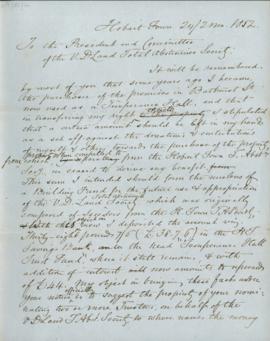 Hobart Town 24/2 mo. 1852.
To the President and Committee
of the V. D. Land Total Abstinence Society.
It will be remembered
by most of you that some years ago I became
the purchaser of the premises in Bathurst St
now used as a Temperance Hall, and that
in transferring my right I stipulated
that a certain amount should be left in my hands
as a set off against the donations & contributions
of myself & others towards the purchase of the property
from the Hobart Town T. Abst
Socy, in reserved to derive any benefit from
This sum I intended should form the nucleus of
a Building Fund for the future use & appropriation
of the V. D. Land Society which was originally
composed of Seceders from the H. Town T. Abst. S.
With this view I deposited the amount viz
Thirty eight pounds 7/6 (£38.7.6) in the H. T.
Savings Bank, under the head Temperance Hall
Trust Fund, where it still remains, & with
addition of interest will now amount to upwards
of £44. My object in bringing these facts under
your notice is to suggest the propriety of your nomi-
nating two or more Trustees, on behalf of the
V D Land T. Abs. Society to whose names the money